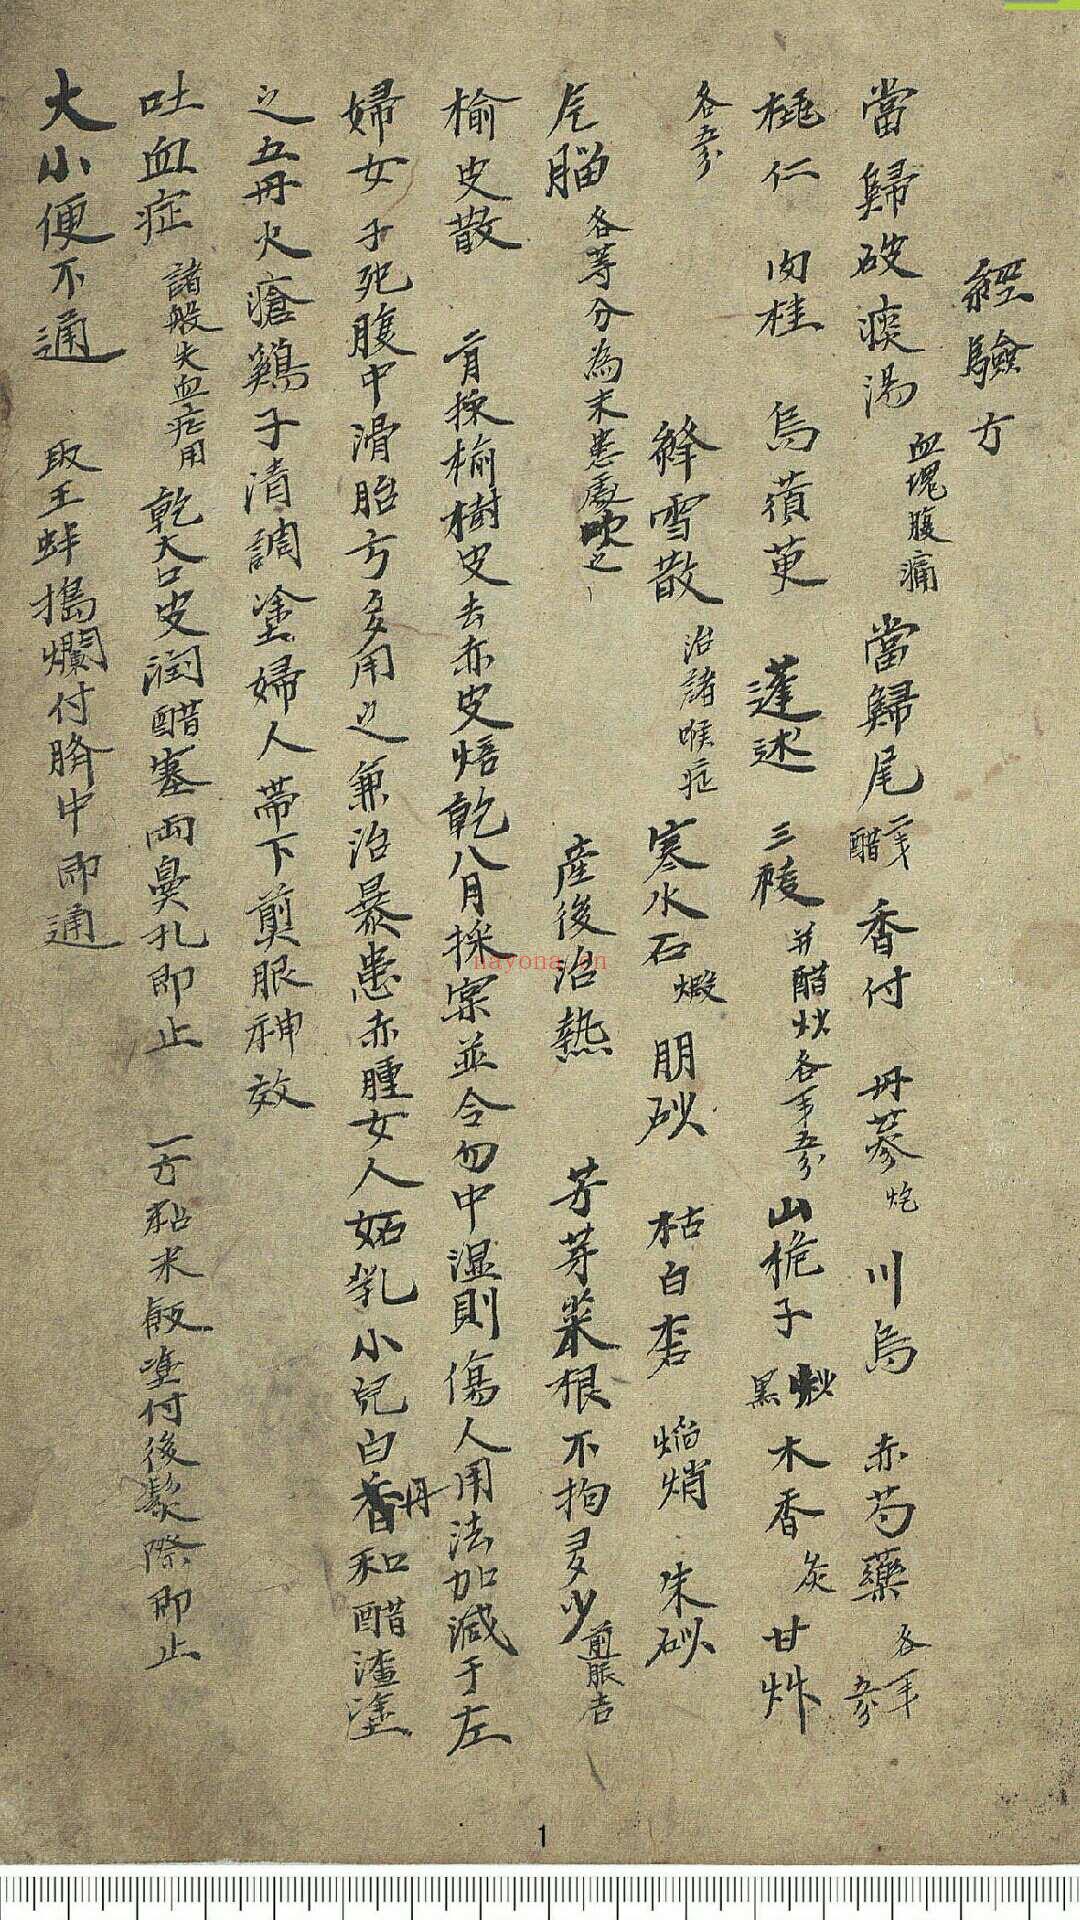 經驗方
當歸破瘀湯 血塊腹痛 當歸尾 二戔 醋 香付 丹蔘 炮 川烏 赤芍藥 各一戔 五分
桃仁 肉桂 烏蕒 蓬述 三稜 並醋炒各一戔五分 山梔子 黑炒 木香 炭 甘艸
各五分
絳雪散 治諸喉症 寒水石 煅 朋砂 枯白礬 焰焇 朱砂
片腦 各等分為末患處吹之 產後治熱 芳芽菜根不拘多少 煎服吉
榆皮散 二月採榆樹皮去赤皮焙乾八月採宲並令勿中湿則傷人用法加減于左
婦女子死腹中滑胎方多用之兼治暴患赤腫女人妬乳小兒白香丹和醋渣塗
之五丹火瘡鷄子清調塗婦人帶下煎服神效
吐血症 諸般失血症用 乾大口皮潤醋塞兩鼻孔即止 一方粘米飯塗付後髮際即止
大小便不通 取王蚌搗爛付臍中即通
nayona.cn
1